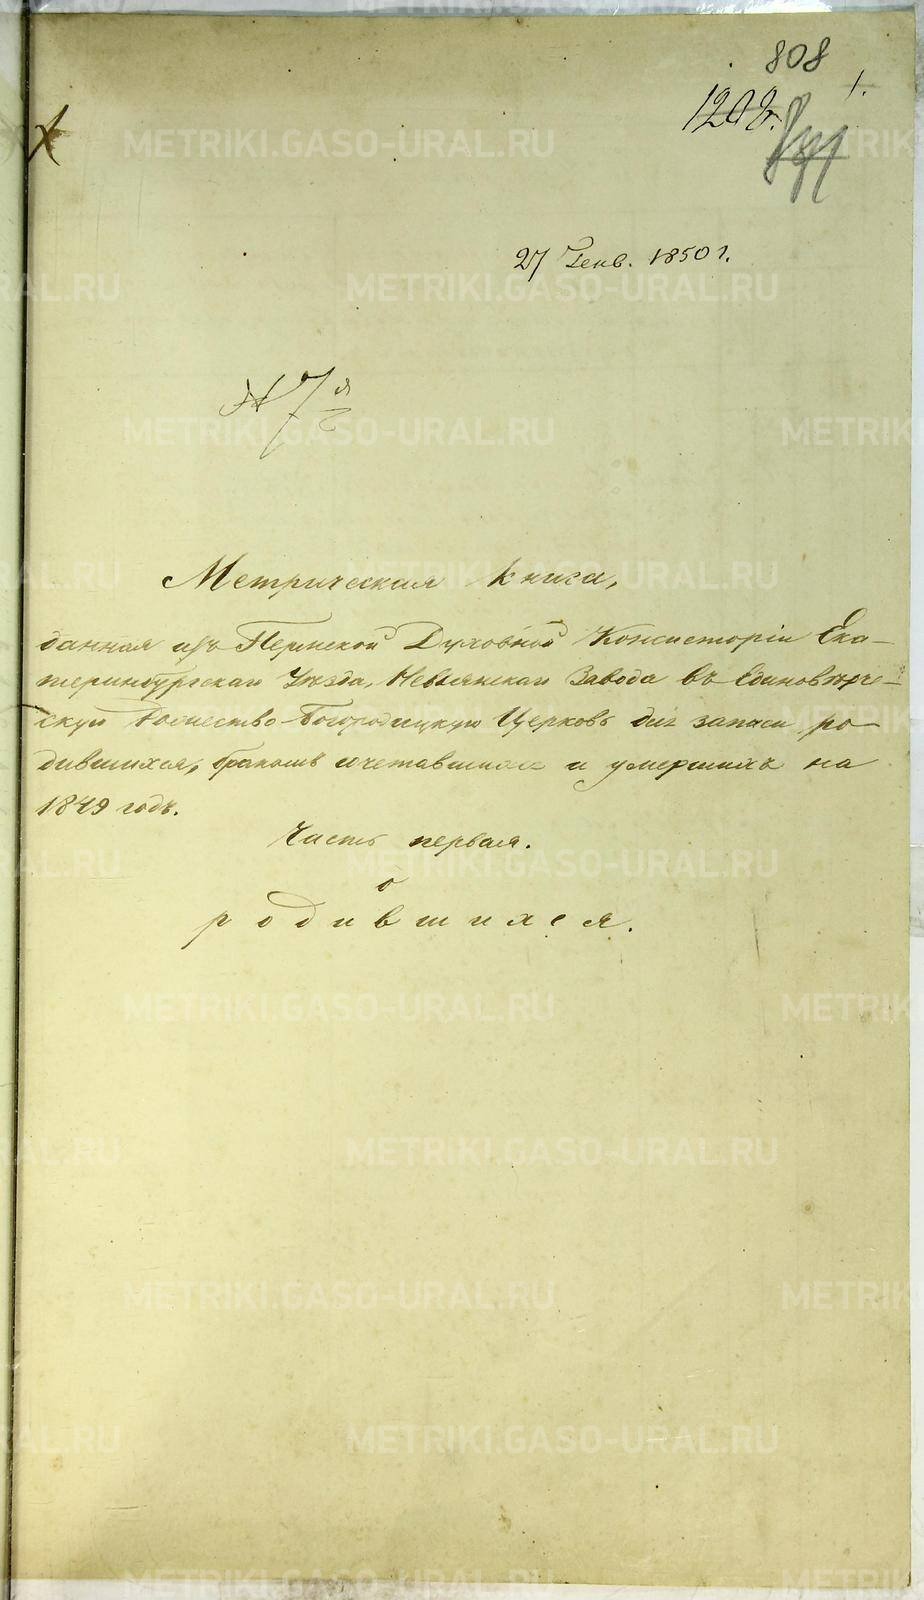 808
1.
1208.
27 Генв. 1850 г.
№ 7й
Метрическая книга,
данная изъ Пермской Духовной Консисторіи Ека-
теринбургскаго Уѣзда, Невьянскаго Завода въ Единовѣрче-
скую Рождество-Богородицкую Церковь для записи ро-
дившихся, бракомъ сочетавшихся и умершихъ на
1849 годъ.
Часть первая.
о
родившихся.
METRIKI.GASO-URAL.RU